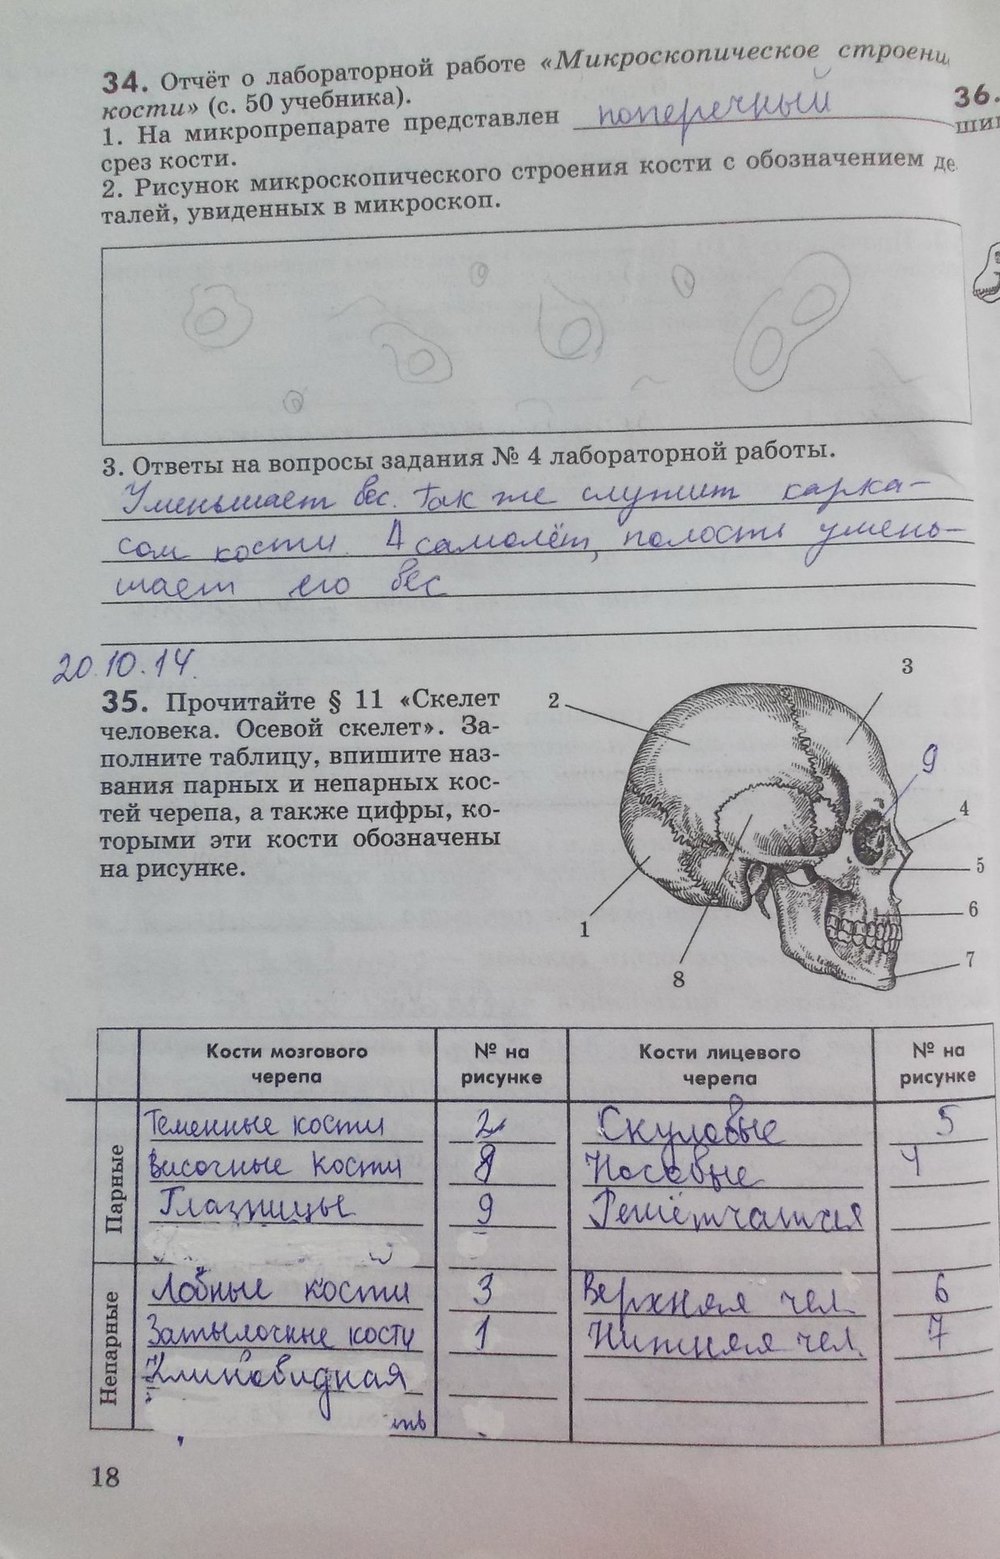 34. Отчёт о лабораторной работе «Микроскопическое строени
кости» (с. 50 учебника).
36.
1. На микропрепарате представлен поперечный
срез кости.
2. Рисунок микроскопического строения кости с обозначением де
талей, увиденных в микроскоп.
3. Ответы на вопросы задания № 4 лабораторной работы.
Уменьшает вес. Так же служит карка-
сом кости. А самолёт, полости умень-
шает его вес
20.10.14.
35. Прочитайте § 11 «Скелет
человека. Осевой скелет». За-
полните таблицу, впишите наз-
вания парных и непарных кос-
тей черепа, а также цифры, ко-
торыми эти кости обозначены
на рисунке.
3
2
9
4
5
6
7
1
8
Кости мозгового черепа
№ на рисунке
Кости лицевого черепа
№ на рисунке
Парные
Теменные кости 2 Скуловые 5
Височные кости 8 Носовые 4
Глазницы 9 Решётчатая
Непарные
Лобные кости 3 Верхняя чел. 6
Затылочные кости 1 Нижняя чел. 7
Клиновидная
18